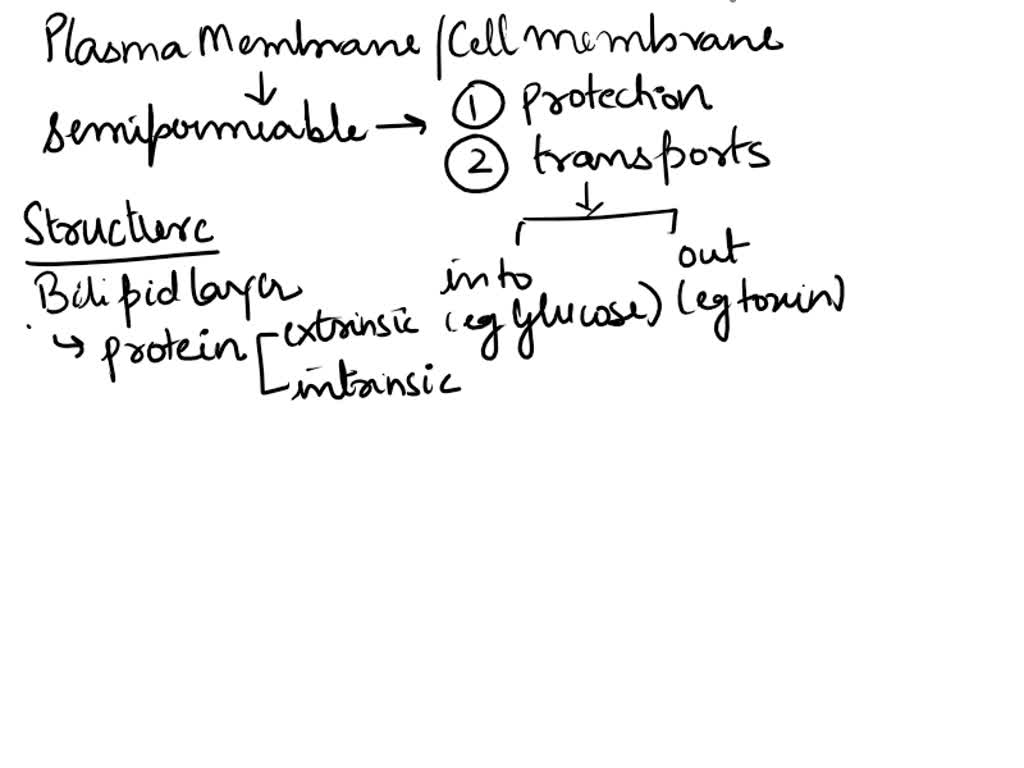 Plasma Membrane / Cell membrane
↓
Semipermiable → ① protection
② transports
↓
Structure
into out
(eg glucose) (eg toxin)
Bilipid layer
↳ protein extrinsic
intrinsic